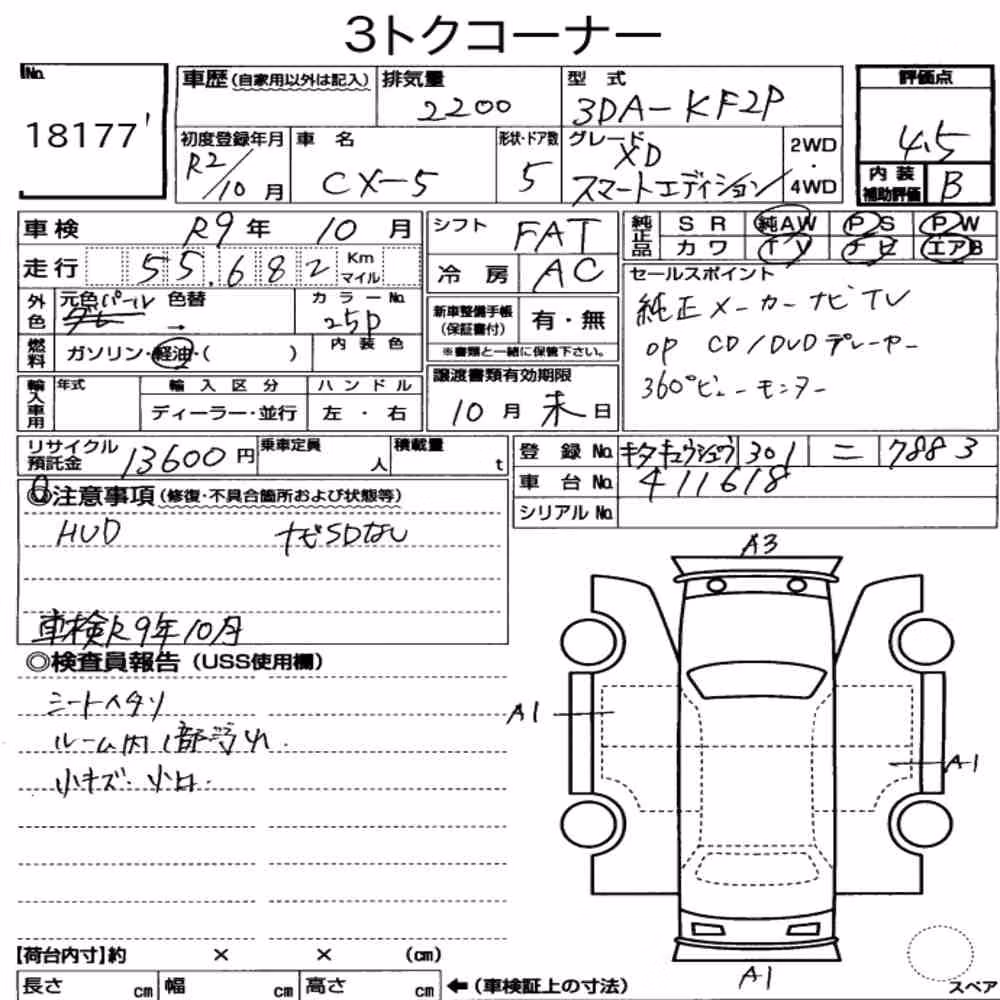 3トクコーナー
No.
18177
車歴(自家用以外は記入)
排気量
2200
型式
3DA-KF2P
評価点
4.5
初度登録年月
R2/10月
車名
CX-5
形状・ドア数
5
グレード
XD
スマートエディション
2WD
・
4WD
内装
補助評価
B
車検 R9年 10月
走行 55,682 Km
マイル
外色
元色 パール 色替
→
カラーNo.
25D
燃料
ガソリン・軽油・( )
内装色
輸入車用
年式
輸入区分
ディーラー・並行
ハンドル
左・右
シフト
FAT
冷房
AC
新車整備手帳
(保証書付)
有・無
※書類と一緒に保管下さい。
譲渡書類有効期限
10月末日
純正品
SR
純AW
PS
PW
カワ
TV
ナビ
エアB
セールスポイント
純正メーカーナビTV
op CD/DVDプレーヤー
360°ビューモニター
リサイクル
預託金
13600円
乗車定員
人
積載量
t
登録No. キタキュウシュウ 301 ニ 7883
車台No. 411618
シリアルNo.
◎注意事項(修復・不具合箇所および状態等)
HUD ナビSDなし
車検R9年10月
◎検査員報告(USS使用欄)
シートヘタリ
ルーム内1部汚れ.
小キズ・小凹.
A3
A1
A1
A1
【荷台内寸】約 × × (cm)
長さ cm 幅 cm 高さ cm ←(車検証上の寸法)
スペア